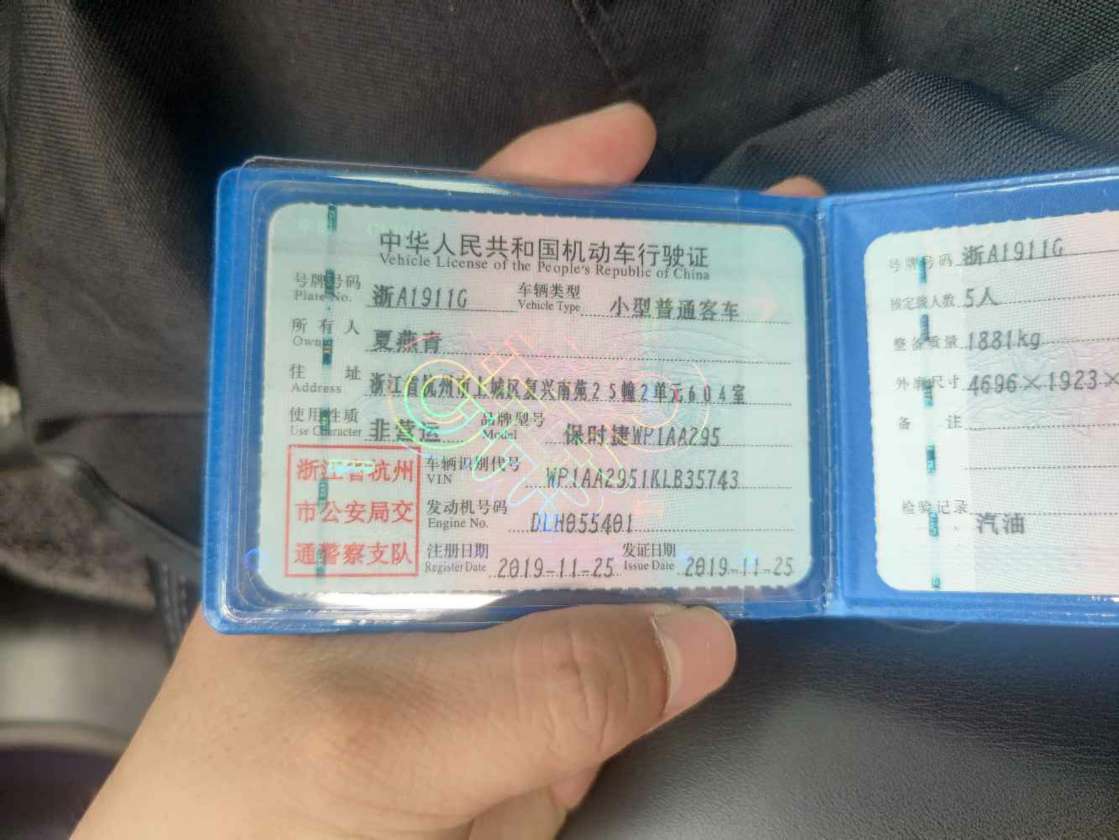 中华人民共和国机动车行驶证
Vehicle License of the People's Republic of China
号牌号码 浙A1911G 车辆类型 小型普通客车
Plate No. Vehicle Type
所有人 夏燕青
Owner
住址 浙江省杭州市上城区复兴南苑25幢2单元604室
Address
使用性质 非营运 品牌型号 保时捷WP1AA295
Use Character Model
浙江省杭州
市公安局交
通警察支队
车辆识别代号 WP1AA2951KLB35743
VIN
发动机号码 DLH055401
Engine No.
注册日期 2019-11-25 发证日期 2019-11-25
Register Date Issue Date
号牌号码 浙A1911G
核定载人数 5人
整备质量 1881kg
外廓尺寸 4696×1923×
备注
检验记录 汽油